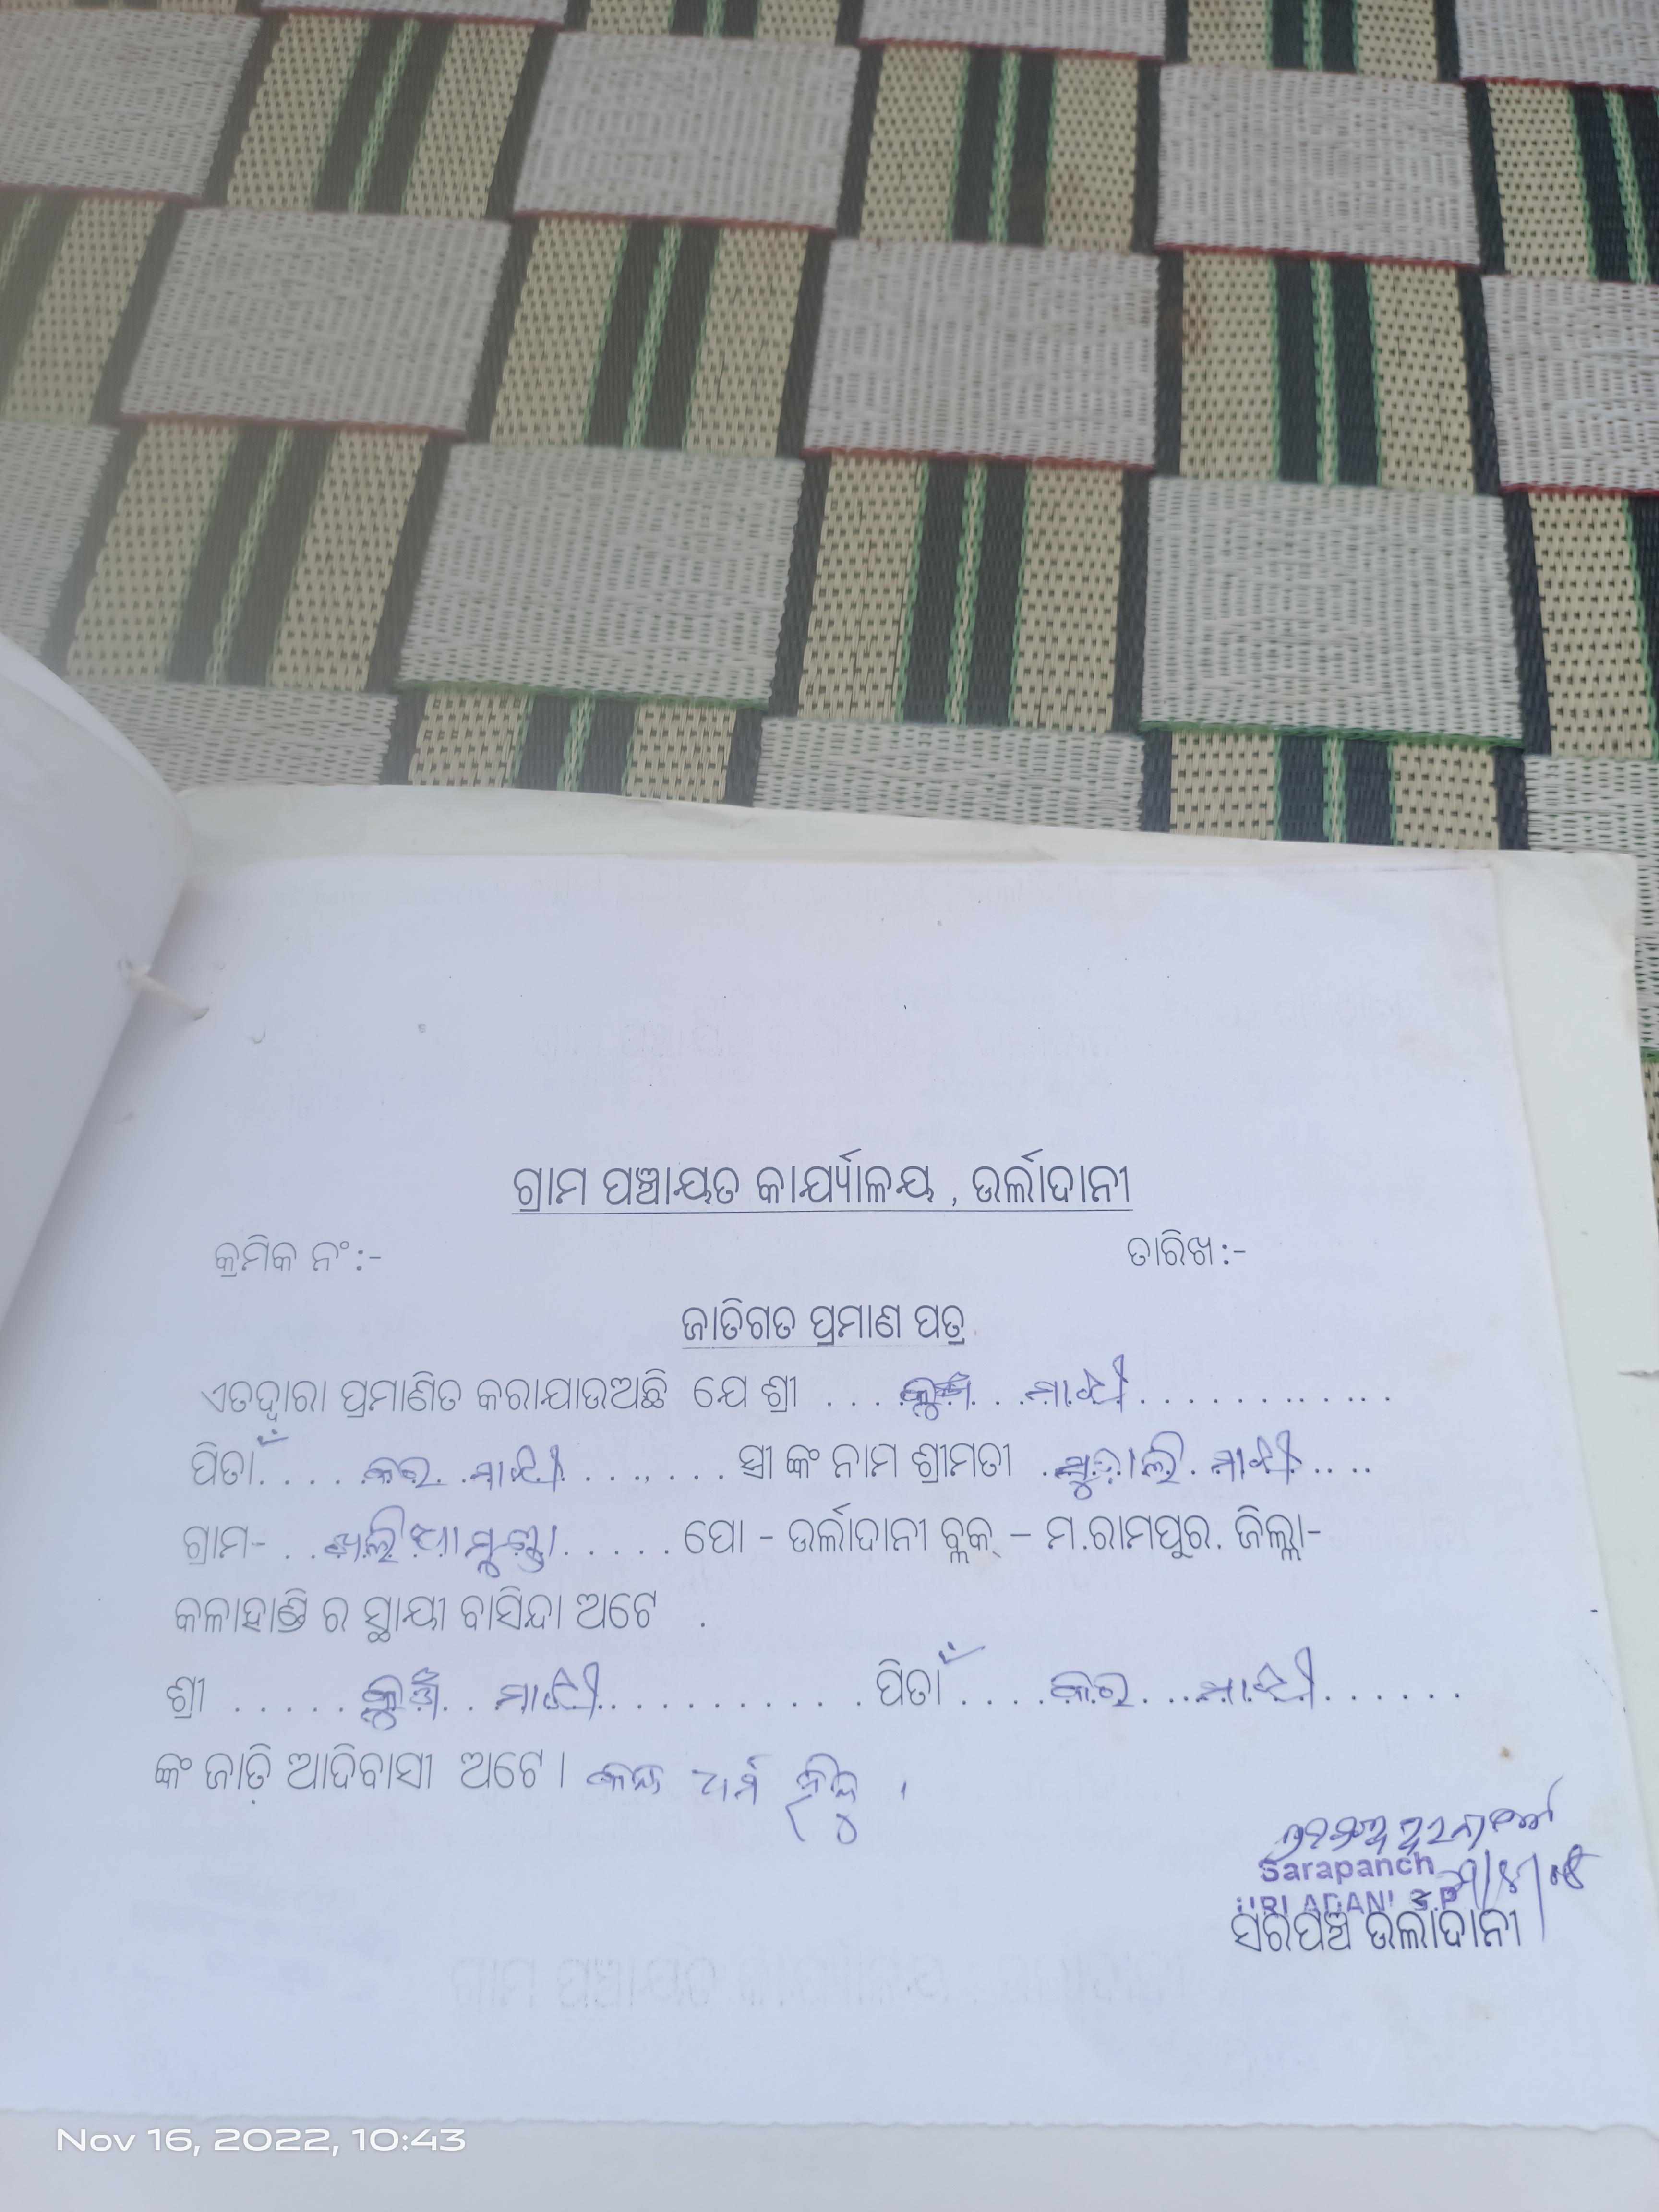 ଗ୍ରାମ ପଞ୍ଚାୟତ କାର୍ଯ୍ୟାଳୟ , ଉର୍ଲାଦାନୀ
କ୍ରମିକ ନଂ :- ତାରିଖ :-
ଜାତିଗତ ପ୍ରମାଣ ପତ୍ର
ଏତଦ୍ୱାରା ପ୍ରମାଣିତ କରାଯାଉଅଛି ଯେ ଶ୍ରୀ ... ... ମାଝୀ ..............
ପିତା .... କର .. ମାଝୀ ......... ସ୍ତ୍ରୀ ଙ୍କ ନାମ ଶ୍ରୀମତୀ . ମାଝୀ ....
ଗ୍ରାମ- ..... ପୋ - ଉର୍ଲାଦାନୀ ବ୍ଲକ୍ – ମ.ରାମପୁର. ଜିଲ୍ଲା-
କଳାହାଣ୍ଡି ର ସ୍ଥାୟୀ ବାସିନ୍ଦା ଅଟେ .
ଶ୍ରୀ ..... .. ମାଝୀ ............ ପିତା .... କର ... ମାଝୀ ......
ଙ୍କ ଜାତି ଆଦିବାସୀ ଅଟେ । କନ୍ଧ ଧର୍ମ ହିନ୍ଦୁ ।
Sarapanch
ସରପଞ୍ଚ ଉର୍ଲାଦାନୀ
Nov 16, 2022, 10:43